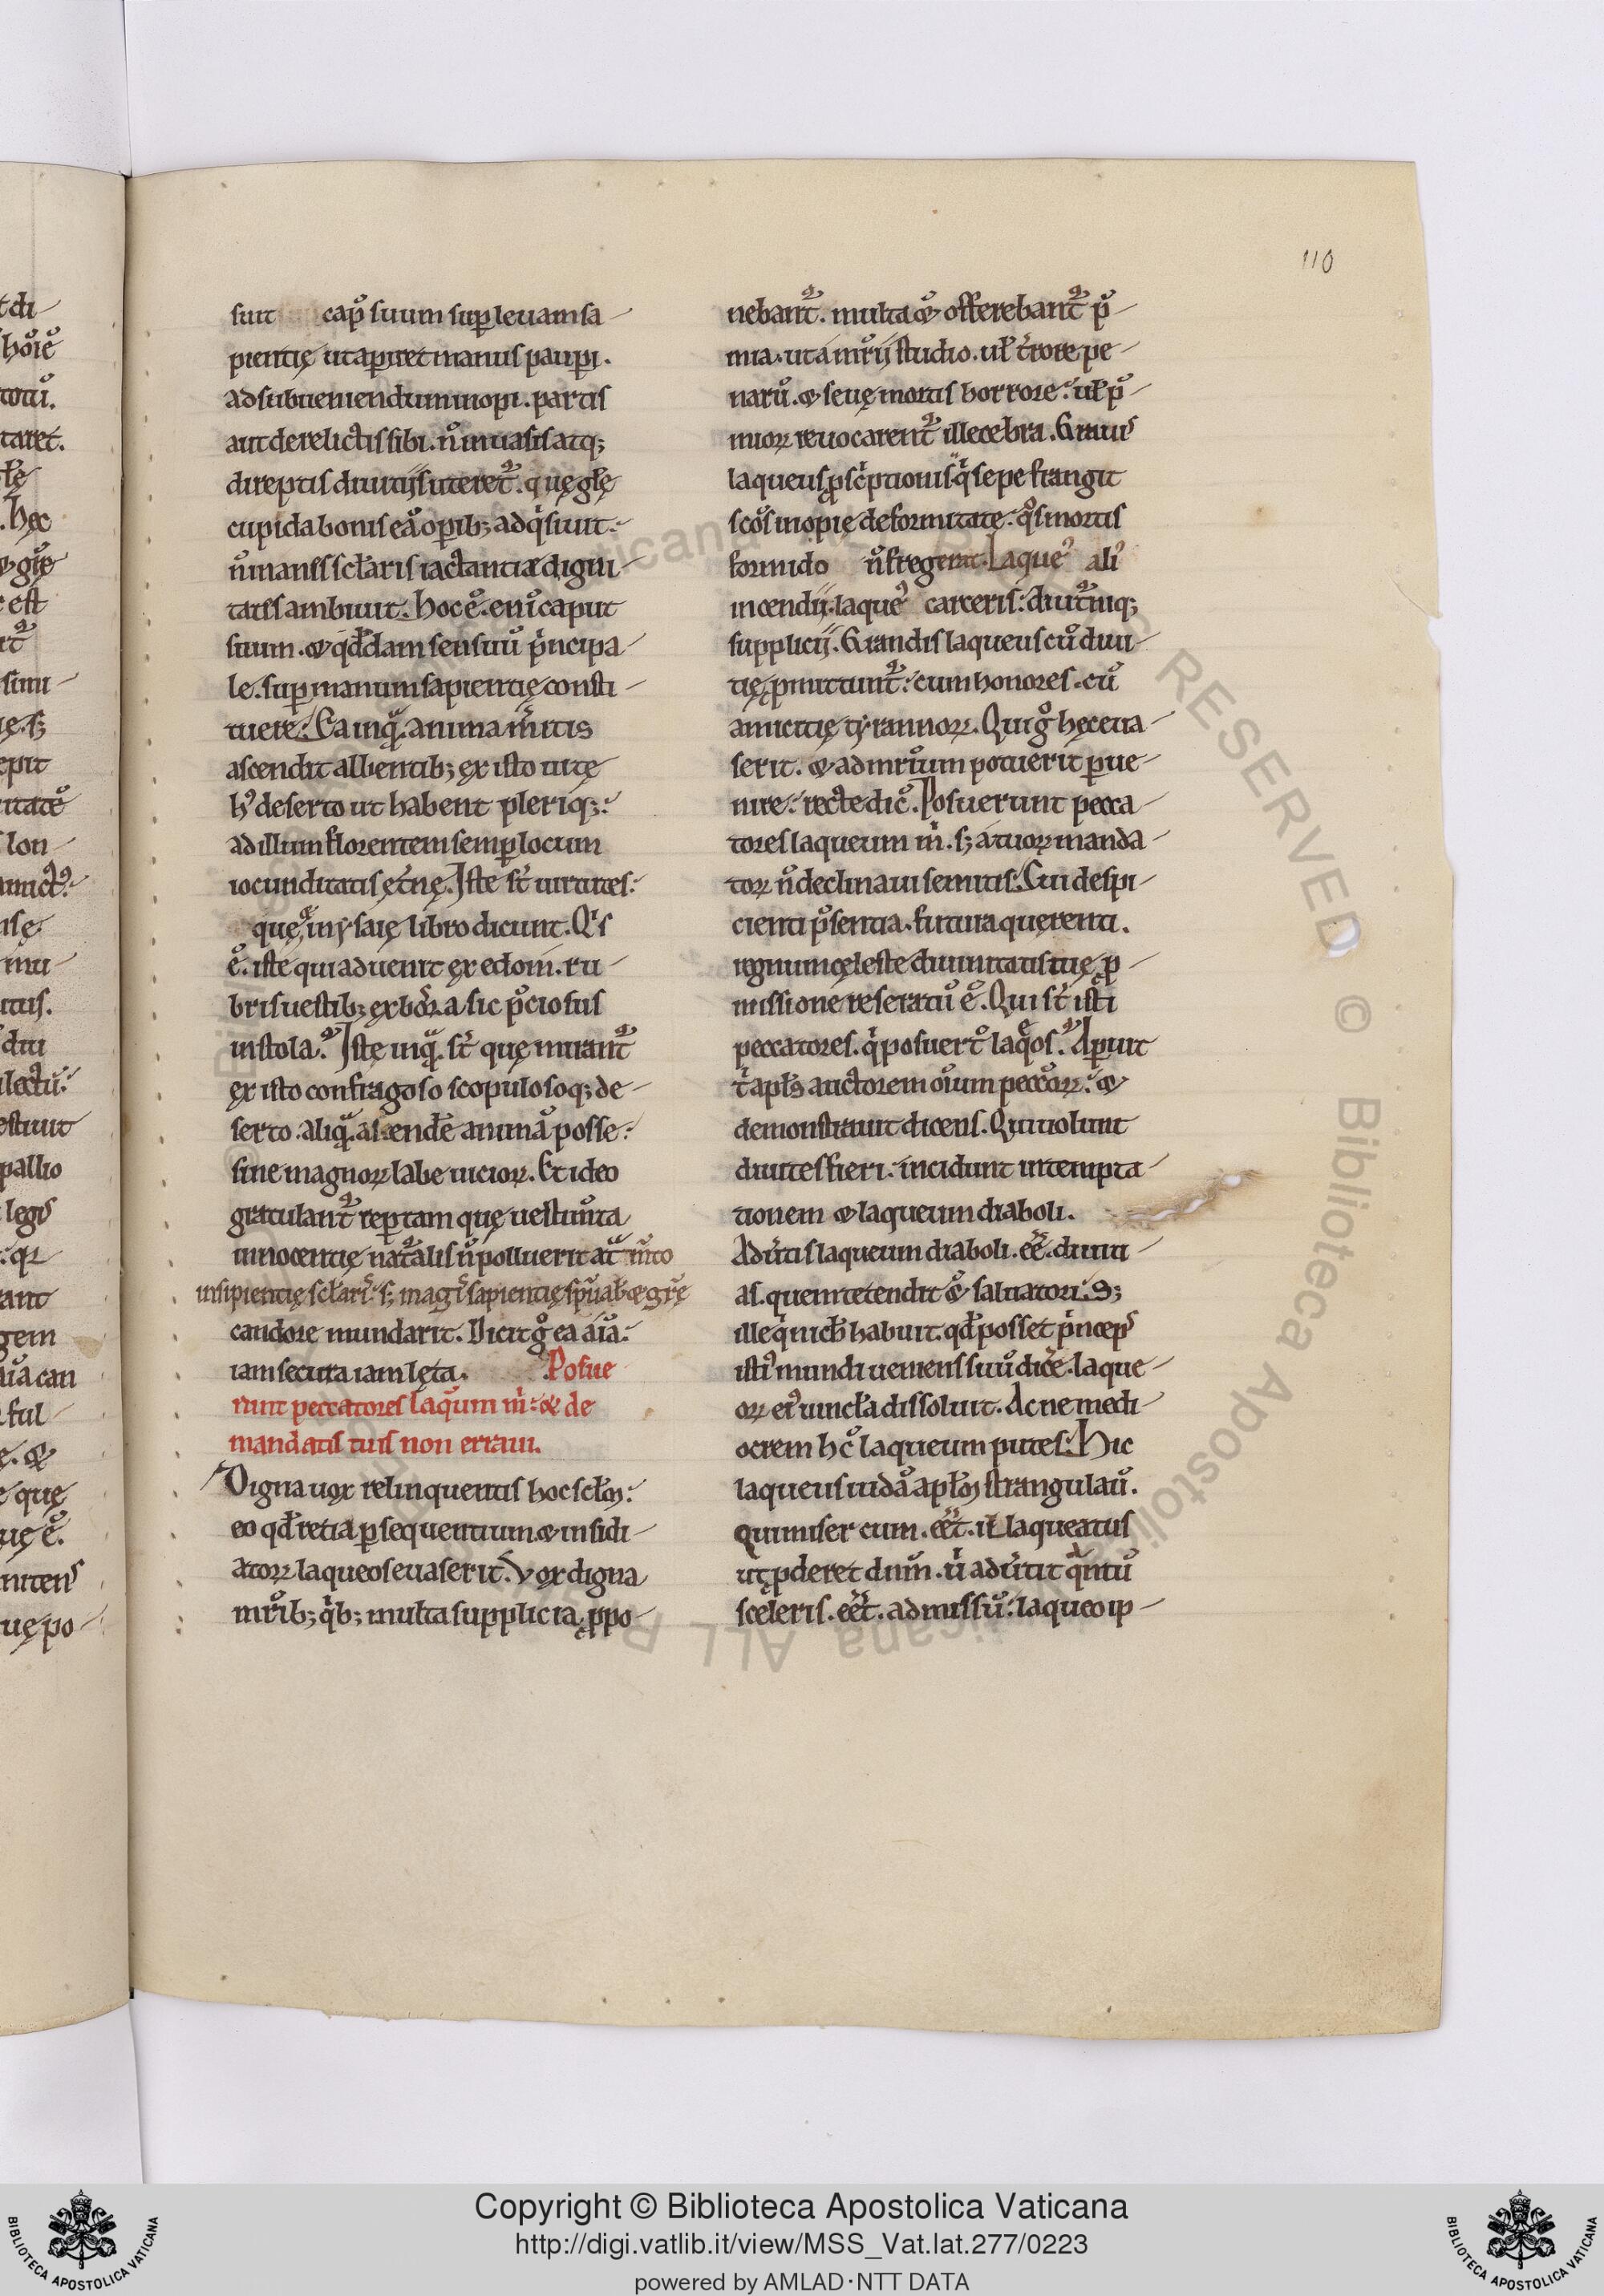 110
suit cap̄ suum sup leuam sa-
pientię ut apiret manus paupi.
ad subueniendum inopi. partis
aut derelictis sibi. n̄ inuasis atq;
direptis diuitijs uteret᷑. quę głę
cupida bonis eā opib; adq̇siuit:
n̄ inanes scłaris iactantiæ digni-
tates ambiuit. Hoc ē. eni caput
suum. & qđdam sensuū ṗncipa-
le. sup manum sapientię consti-
tuere. Ea inq̄. anima m̄itis
ascendit albentib; ex isto uitę
h᷒ deserto ut habent pleriq;:
ad illum florentem semp locum
iocunditatis ęt̄nę. Istę st̄ uirtutes:
quę in ysaię libro dicunt. Qis
ē. iste qui aduenit ex edom. ru-
bris uestib; ex bosra sic p̄ciosus
in stola. Istę inq̄. st̄ quę mirant᷑
ex isto confragoso scopulosoq; de-
serto. aliq̄. ascendē animā posse:
sine magnoꝝ labe uicioꝝ. Et ideo
gratulant᷑ reptam quę uestim̄ta
innocentię natalis n̄ polluerit at̄ m̄to
insipientię scłaris. s; magis sapientię spūał & gr̄ę
candore mundarit. Dicit g̊ ea aīa:
iam secura iam lęta. Posue
runt peccatores laq̄um m̄: & de
mandatis tuis non erraui.
Digna uox relinquentis hoc scłm:
eo qđ retia psequentium & insidi-
atoꝝ laqueos euaserit. Vox digna
mr̄ib; q̇b; multa supplicia ꝓpo-
nebant᷑. multa & offerebant᷑ p̄-
mia. ut a mr̄ij studio. uł t̄rore pe-
narū. & seuę mortis horrore: uł p̄-
mioꝝ reuocarent᷑ illecebra. Grauis
laqueus ꝓsc̄ptionis q̇ sepe frangit
sc̄os inopię deformitate. q̊s mortis
formido n̄ fregerat. Laque᷒ ali᷒
incendij. laque᷒ carceris: diut᷑niq;
supplicij. Grandis laqueus cū diui-
tię ꝓmittunt᷑: cum honores. cū
amicitię tyrannoꝝ. Qui g̊ hęc eua-
serit. & ad mr̄ium potuerit pue-
nire: recte dic̄. Posuerunt pecca-
tores laqueum m̄. s; a tuoꝝ manda-
toꝝ n̄ declinaui semitis. Cui despi-
cienti p̄sentia. futura querenti.
regnum cęleste diuinitatis tuę ꝓ-
missione reseratū ē. Qui st̄ isti
peccatores. q̇ posuert̄ laq̄os. Apuit
t̄ apłs auctorem oīum peccōꝝ: &
demonstrauit dicens. Qui uolunt
diuites fieri: incidunt in tempta-
tionem & laqueum diaboli.
Adu̇tis laqueum diaboli. eē. diuiti-
as. quem tetendit & saluatori: S;
ille q̇ nich̄ habuit. qđ posset ṗnceps
isti᷒ mundi ueniens suū dic̄e. laque-
oꝝ ei᷒ uincła dissoluit. Ac ne medi-
ocrem hc̄ laqueum putes: Hic
laqueus iudā apłm strangulau̅.
Qui miser cum. eēt. illaqueatus
ut ꝓderet dn̄m. ū adu̇tit q̄ntū
sceleris. eēt. admissū: laqueo ip-
Copyright © Biblioteca Apostolica Vaticana
http://digi.vatlib.it/view/MSS_Vat.lat.277/0223
powered by AMLAD·NTT DATA